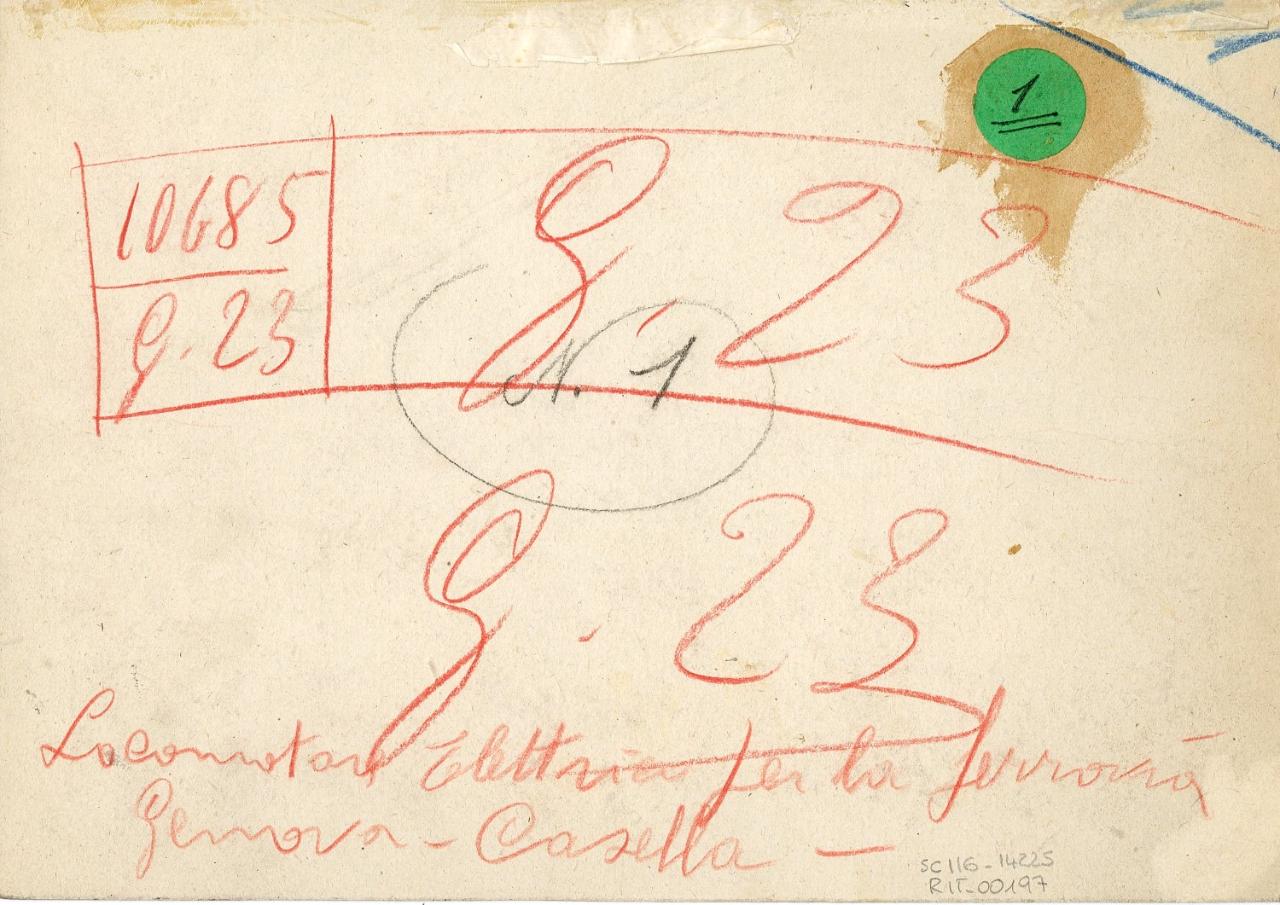 1
10685
G. 23
G. 23
N. 1
G. 23
Locomotore Elettrico per la ferrovia
Genova - Casella -
SC116-14225
RIT-00197